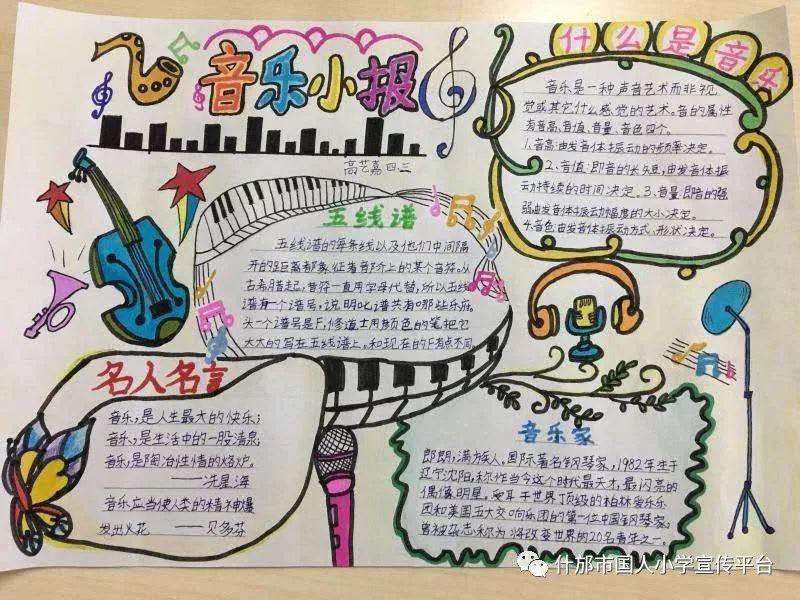 音乐小报
高艺嘉 四三
什么是音乐
音乐是一种声音艺术而非视
觉或其它什么感觉的艺术。音的属性
为音高、音值、音量、音色四个。
1.音高:由发音体振动的频率决定。
2、音值:即音的长短,由发音体振
动持续的时间决定。3、音量:即音的强
弱由发音体振动幅度的大小决定。
4、音色:由发音体振动方式、形状决定。
五线谱
五线谱的每条线以及他们中间隔
开的距离都象征着音阶上的某个音符。从
古希腊起,音符一直用字母代替,所以五线
谱有一个谱号,说明此谱共有哪些乐府。
头一个谱号是F,修道士用颜色的笔把它
大大的写在五线谱上,和现在的F有点不同。
名人名言
音乐,是人生最大的快乐;
音乐,是生活中的一股清泉;
音乐,是陶冶性情的熔炉。
——冼星海
音乐应当使人类的精神爆
发出火花 ——贝多芬
音乐家
郎朗,满族人。国际著名钢琴家,1982年生于
辽宁沈阳,称作当今这个时代最天才,最闪亮的
偶像明星。受聘于世界顶级的柏林爱乐乐
团和美国五大交响乐团的第一位中国钢琴家;
曾被杂志称为"将改变世界的20名青年之一。
什邡市国人小学宣传平台